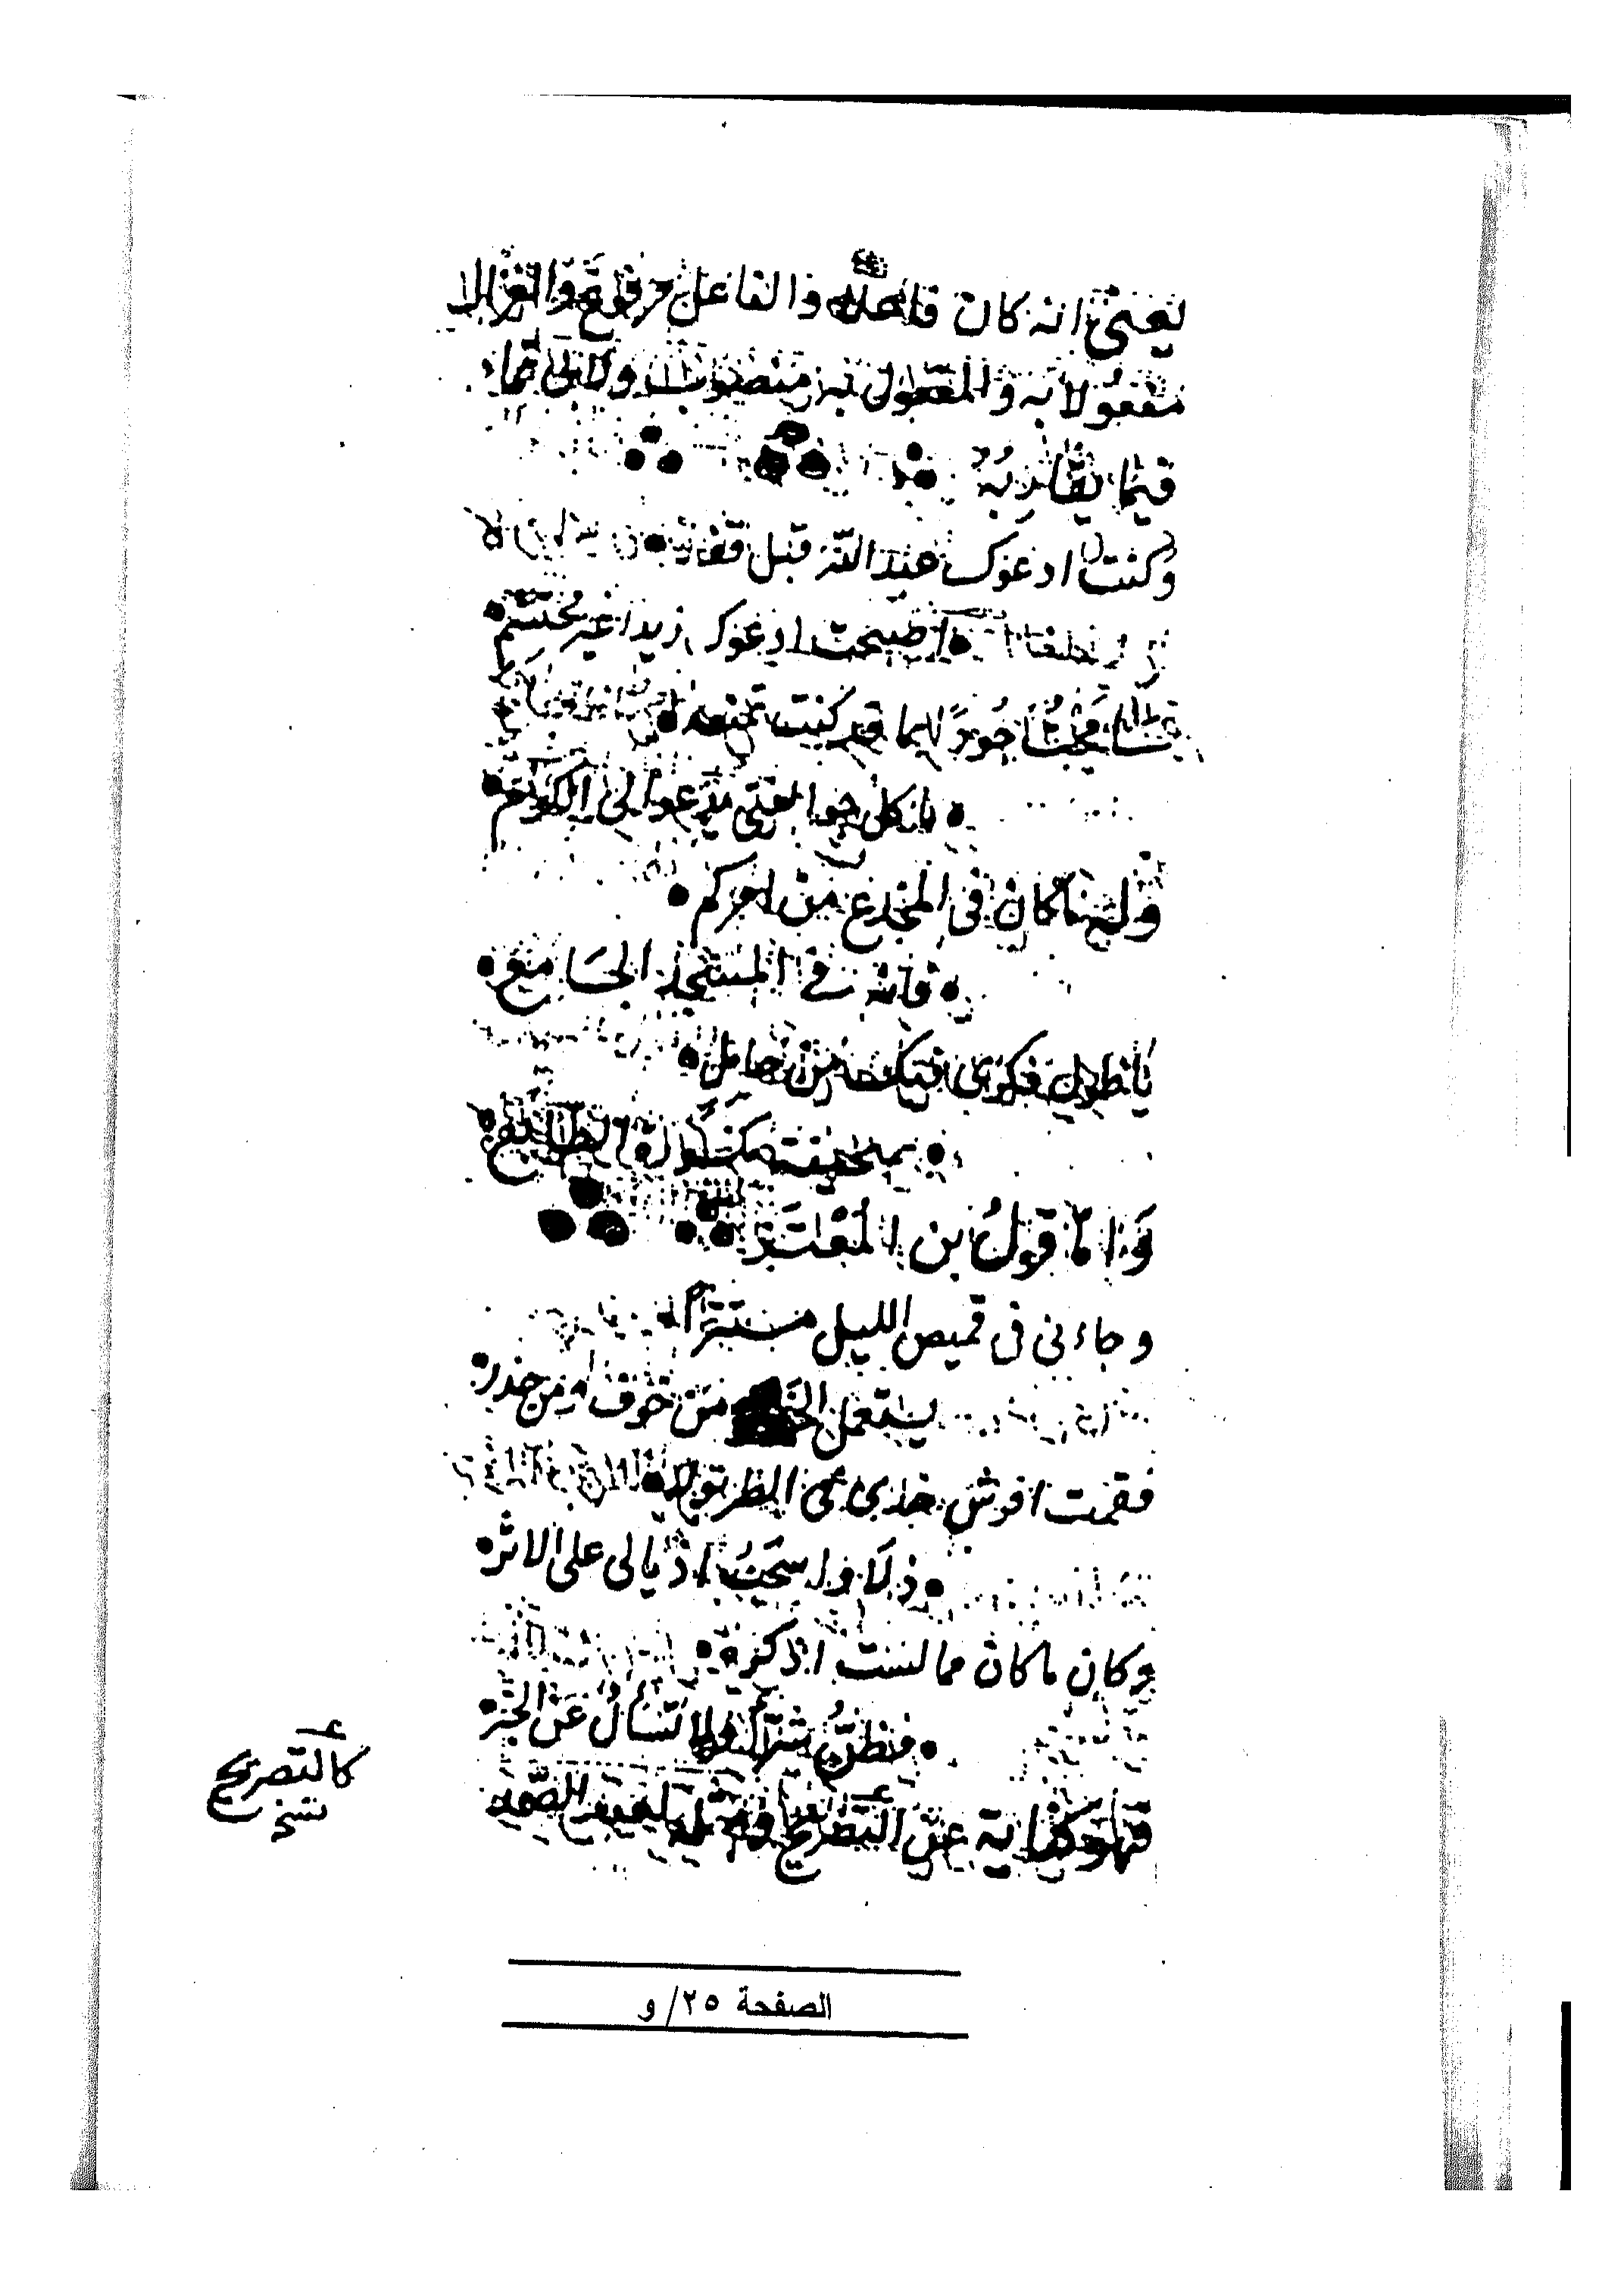 يعني انه كان فاعلا والفاعل مرفوع والغزال
مفعولا به والمفعول به منصوب ولابي تمام
فيما يقاربه
وكنت ادعوك عبد الله قبل فقد
اصبحت ادعوك زيدا غير محتشم
قد كنت تمنعه
فتى يدعو الى الكرم
ولهنا كان في المخدع من امركم
فانه في المسجد الجامع
يا طول فكري فيك من حامل
صحيفة مكسورة الطابع
واما قول بن المعتز
وجاءني في قميص الليل مستترا
يستعمل من خوف ومن حذر
فقمت افرش خدي في الطريق له
ذلا واسحب اذيالي على الاثر
وكان ما كان مما لست اذكره
فظن شرا ولا تسأل عن الخبر
فهو كناية عن التصريح
كالتصريح
نسخ
الصفحة ٢٥/ و